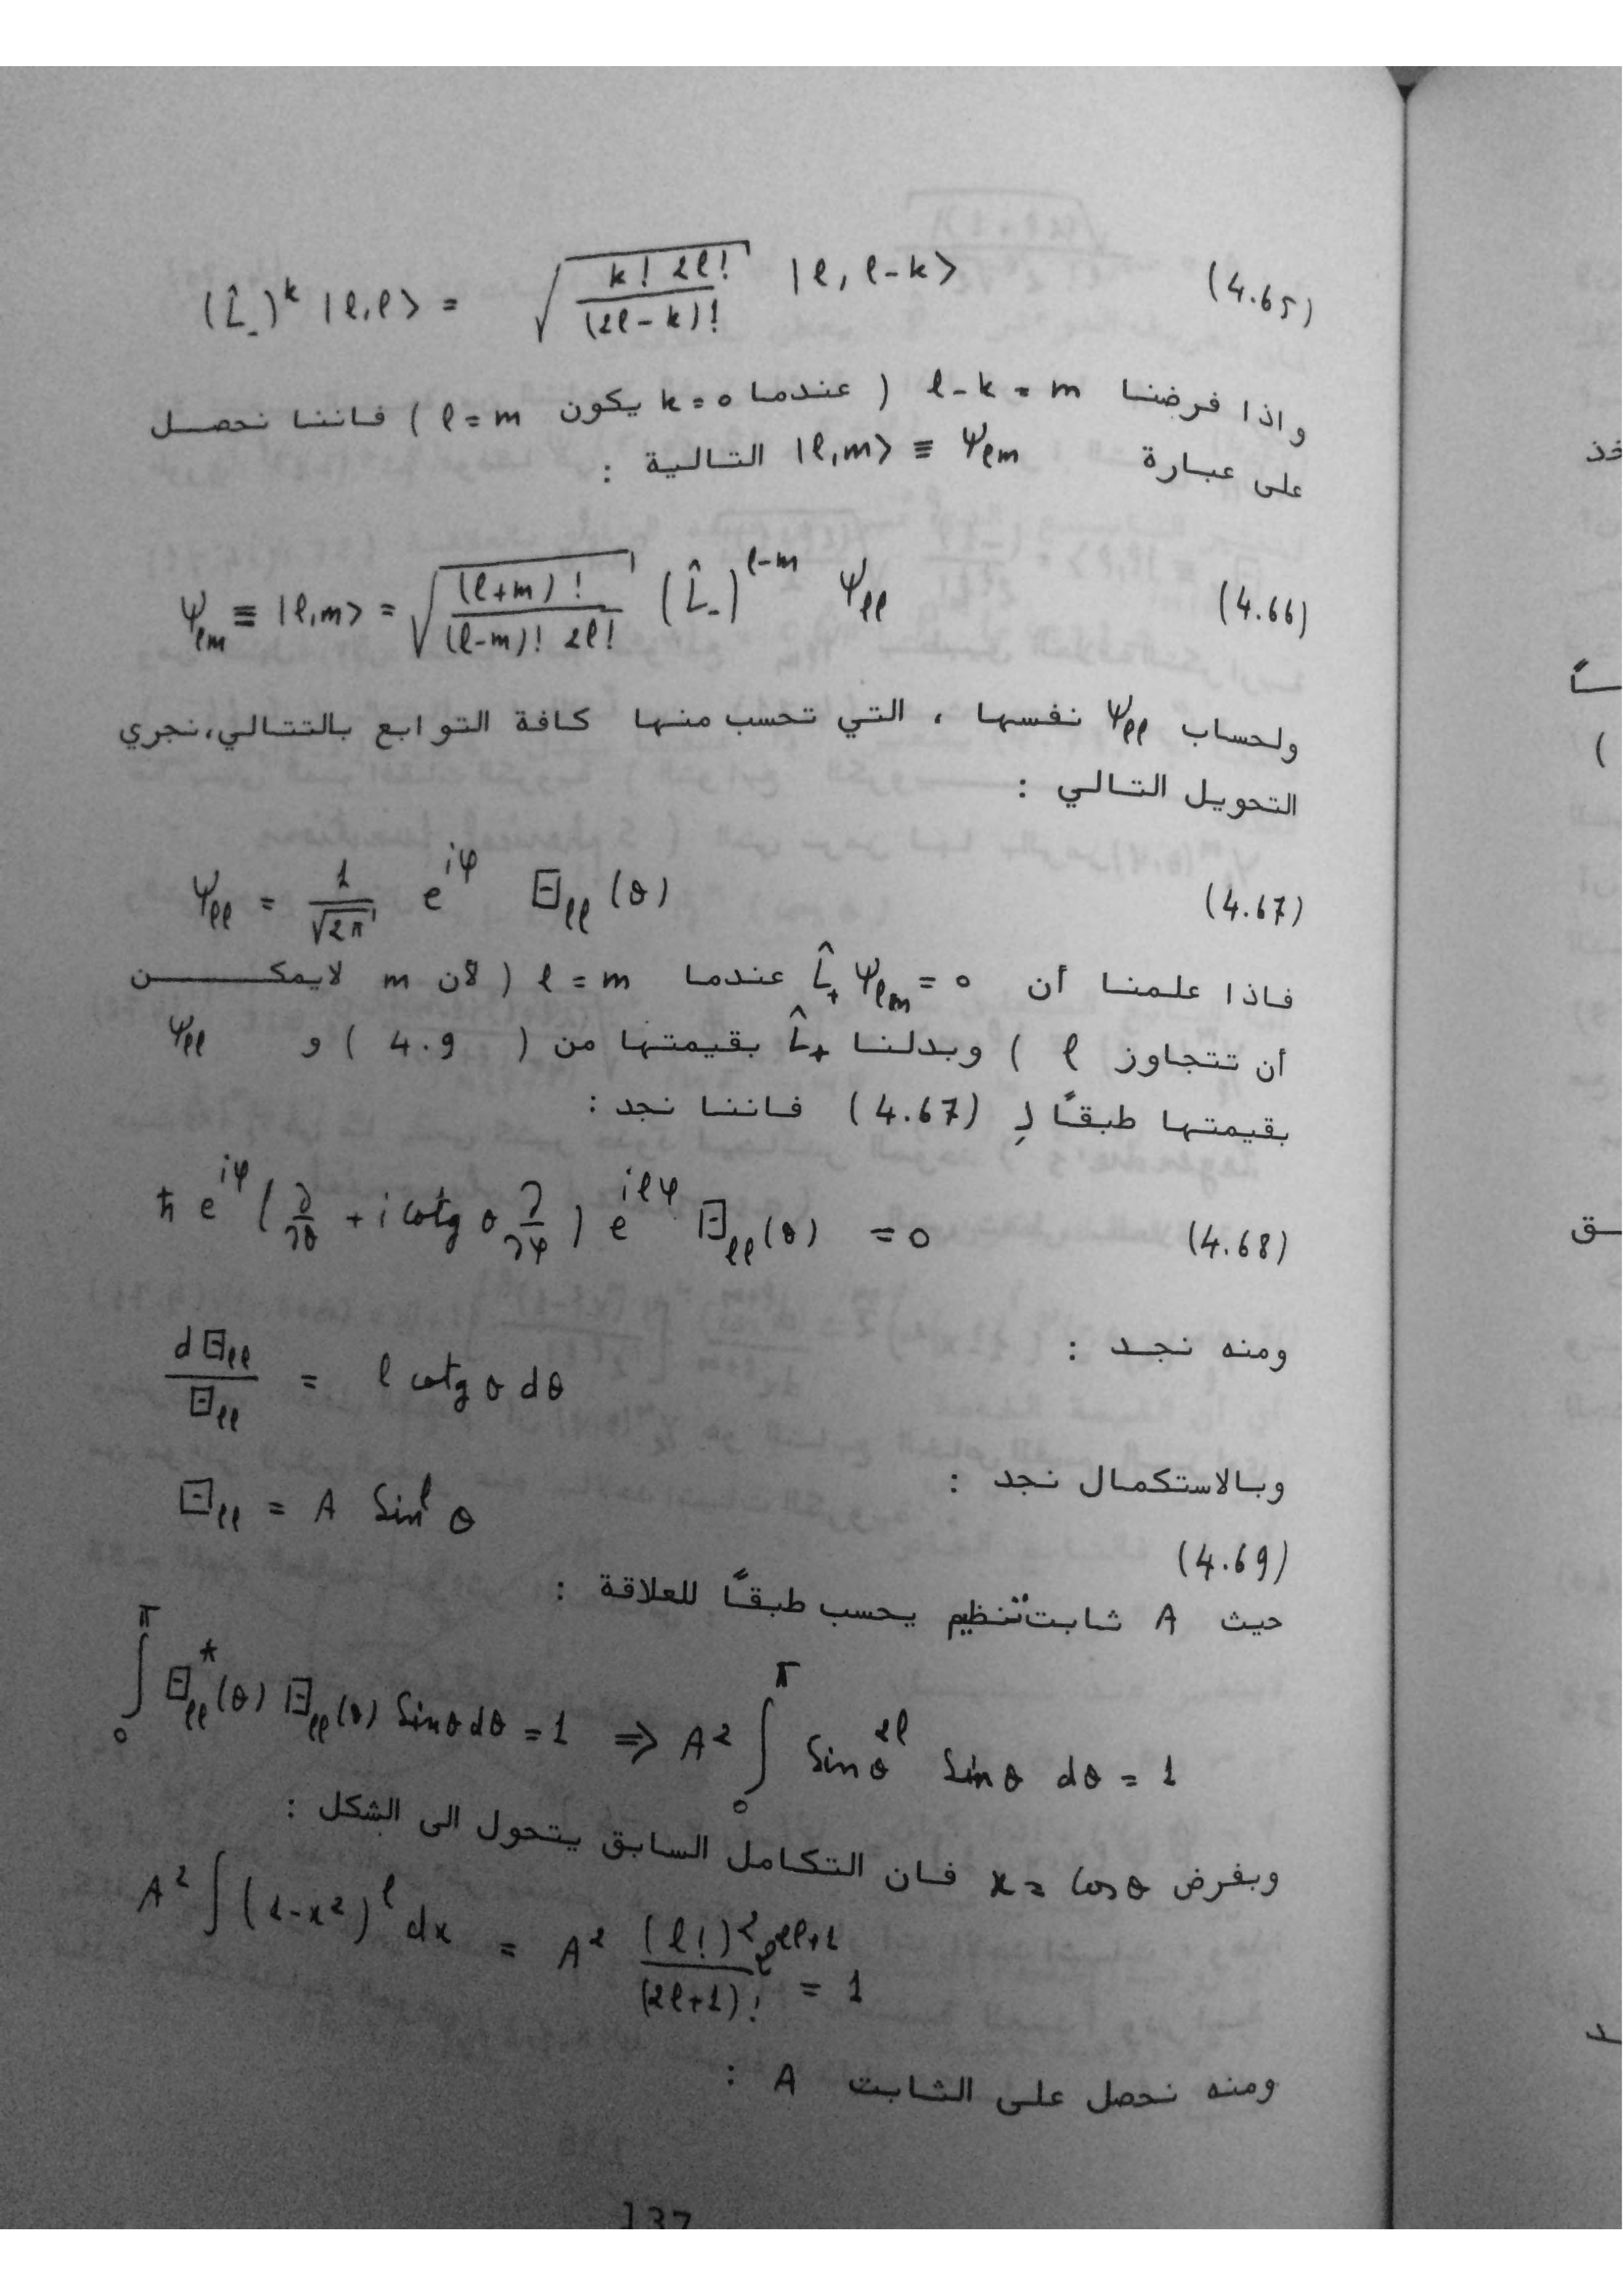 (L̂₋)ᵏ |ℓ,ℓ> = √(k! 2ℓ! / (2ℓ-k)!) |ℓ, ℓ-k> (4.65)
واذا فرضنا ℓ-k = m ( عندما k=0 يكون ℓ=m ) فاننا نحصل
على عبارة |ℓ,m> ≡ Ψℓm التالية :
Ψℓm ≡ |ℓ,m> = √((ℓ+m)! / (ℓ-m)! 2ℓ!) (L̂₋)^(ℓ-m) Ψℓℓ (4.66)
ولحساب Ψℓℓ نفسها ، التي تحسب منها كافة التوابع بالتتالي،نجري
التحويل التالي :
Ψℓℓ = 1/√2π e^(iφ) Θℓℓ(θ) (4.67)
فاذا علمنا أن L̂₊ Ψℓm = 0 عندما ℓ = m ( لأن m لايمكن
أن تتجاوز ℓ ) وبدلنا L̂₊ بقيمتها من ( 4.9 ) و Ψℓℓ
بقيمتها طبقاً لِ (4.67) فاننا نجد :
ħ e^(iφ) (∂/∂θ + i cotg θ ∂/∂φ) e^(iℓφ) Θℓℓ(θ) = 0 (4.68)
ومنه نجد :
dΘℓℓ/Θℓℓ = ℓ cotg θ dθ
وبالاستكمال نجد :
Θℓℓ = A Sin^ℓ θ
(4.69)
حيث A ثابت تنظيم يحسب طبقاً للعلاقة :
∫₀^π Θ*ℓℓ(θ) Θℓℓ(θ) Sinθdθ = 1 ⇒ A² ∫₀^π Sinθ^(2ℓ) Sinθ dθ = 1
وبفرض x = Cosθ فان التكامل السابق يتحول الى الشكل :
A² ∫(1-x²)^ℓ dx = A² (ℓ!)² 2^(2ℓ+1) / (2ℓ+1)! = 1
ومنه نحصل على الثابت A :
137
خذ
ـاً
)
ـق
ـد